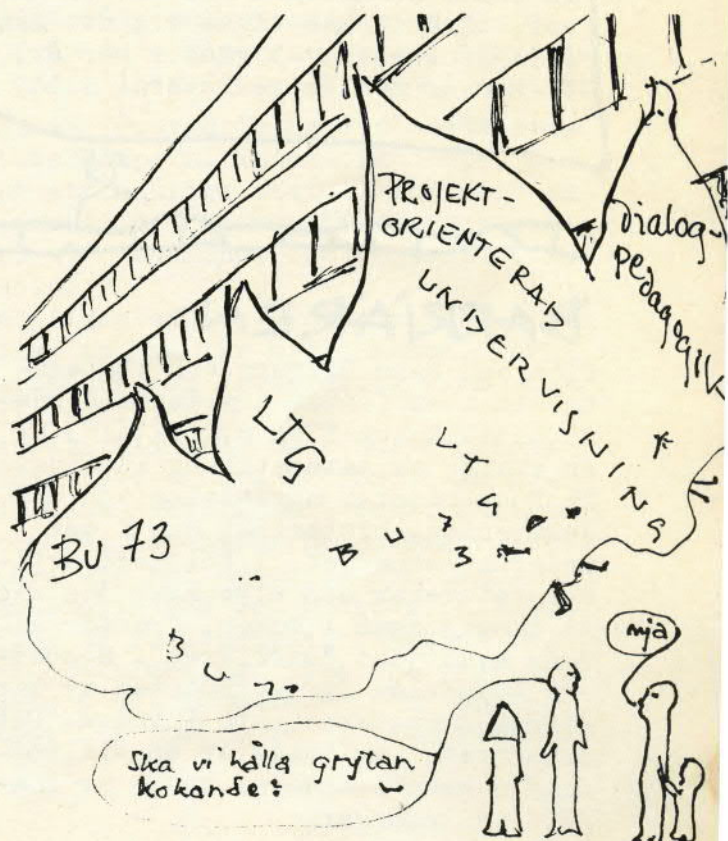 PROJEKT-
ORIENTERAD
UNDERVISNING
Dialog-
pedagogik
LTG
LTG
BU 73
BU73
BU
nja
Ska vi hålla grytan
kokande?